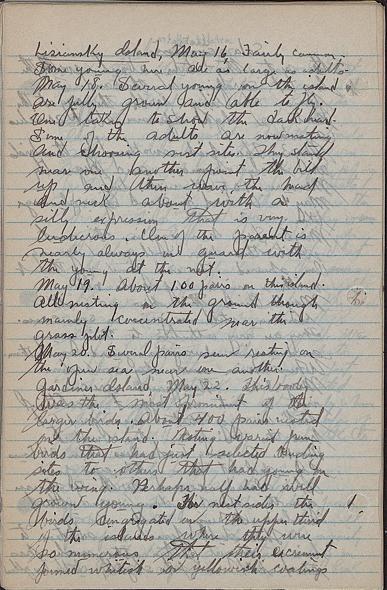 Lisiansky Island, May 16. Fairly common.
Some young here are as large as adults.
May 18. Several young on the island
are fully grown and able to fly.
One taken to show the dark
Some of the adults are now mating
and choosing nest sites. They stand
near one another point the bill
up and then move the head
and neck about with a
silly expression that is very
ludicrous. One of the parents is
nearly always on guard with
the young at the nest.
May 19. About 100 pairs on this island.
All nesting on the ground though
mainly concentrated near the
grass plot.
May 20. Several pairs seen resting on
the open sea near one another.
Gardiner Island, May 22. This booby
was the most prominent of the
larger birds. About 400 pairs nested
on the island. Nesting varied from
birds that had just selected nesting
sites to others that had young on
the wing. Perhaps half had well
grown young. For nest sites the
birds congregated on the upper third
of the island where they were
so numerous that their excrement
formed whitish or yellowish coatings